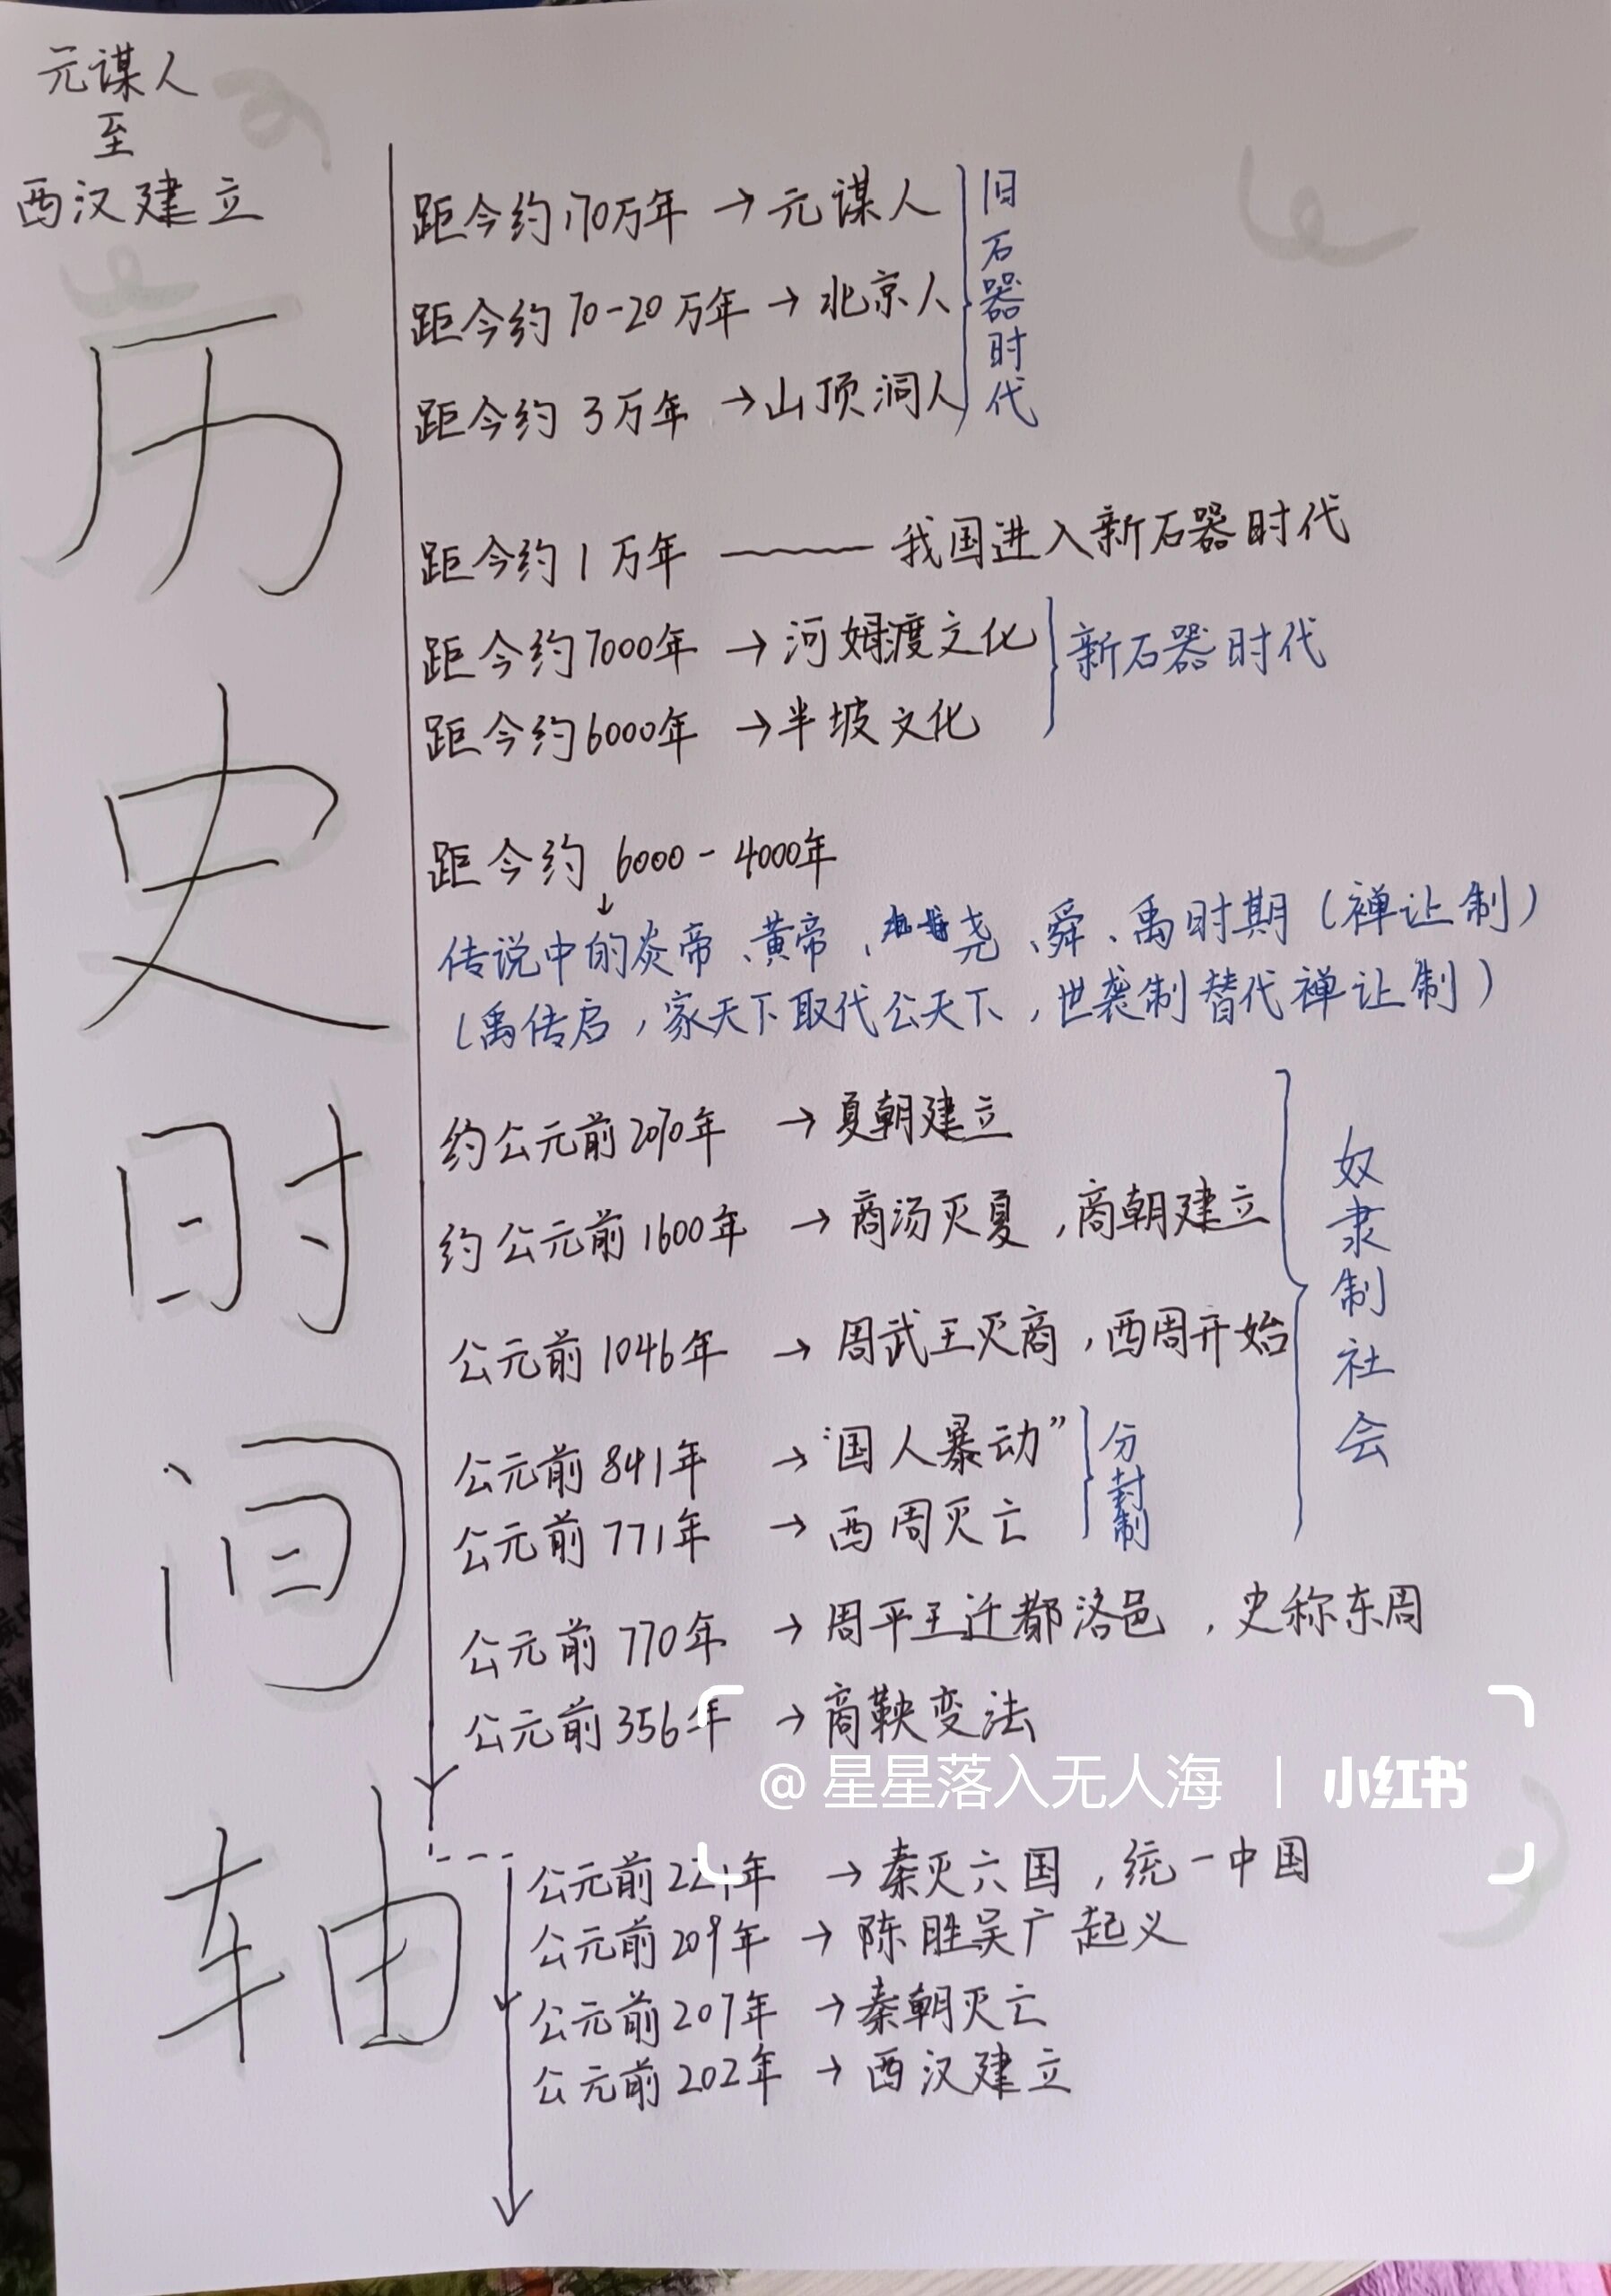 元谋人
至
西汉建立
历史时间轴
距今约170万年 → 元谋人
距今约 70-20万年 → 北京人
距今约 3万年 → 山顶洞人
旧石器时代
距今约1万年 —— 我国进入新石器时代
距今约7000年 → 河姆渡文化
距今约6000年 → 半坡文化
新石器时代
距今约 6000-4000年
↓
传说中的炎帝、黄帝、尧、舜、禹时期（禅让制）
（禹传启，家天下取代公天下，世袭制替代禅让制）
约公元前2070年 → 夏朝建立
约公元前1600年 → 商汤灭夏，商朝建立
公元前1046年 → 周武王灭商，西周开始
公元前841年 → “国人暴动”
公元前771年 → 西周灭亡
分封制
奴隶制社会
公元前770年 → 周平王迁都洛邑，史称东周
公元前356年 → 商鞅变法
@星星落入无人海 | 小红书
公元前221年 → 秦灭六国，统一中国
公元前209年 → 陈胜吴广起义
公元前207年 → 秦朝灭亡
公元前202年 → 西汉建立